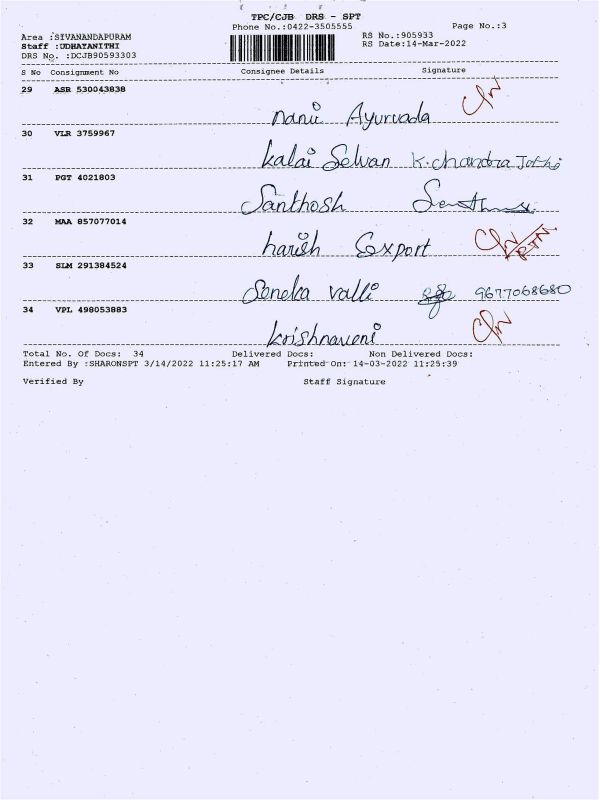 TPC/CJB DRS - SPT
Phone No.:0422-3505555 Page No.:3
Area :SIVANANDAPURAM RS No.:905933
Staff :UDHAYANITHI RS Date:14-Mar-2022
DRS No. :DCJB90593303
S No Consignment No Consignee Details Signature
29 ASR 530043838
nanii Ayurvada
30 VLR 3759967
kalai Selvan K.chandra Jothi
31 PGT 4021803
Santhosh
32 MAA 857077014
harish Export RTN
33 SLM 291384524
Seneka valli 9677068680
34 VPL 498053883
krishnaveni
Total No. Of Docs: 34 Delivered Docs: Non Delivered Docs:
Entered By :SHARONSPT 3/14/2022 11:25:17 AM Printed On: 14-03-2022 11:25:39
Verified By Staff Signature